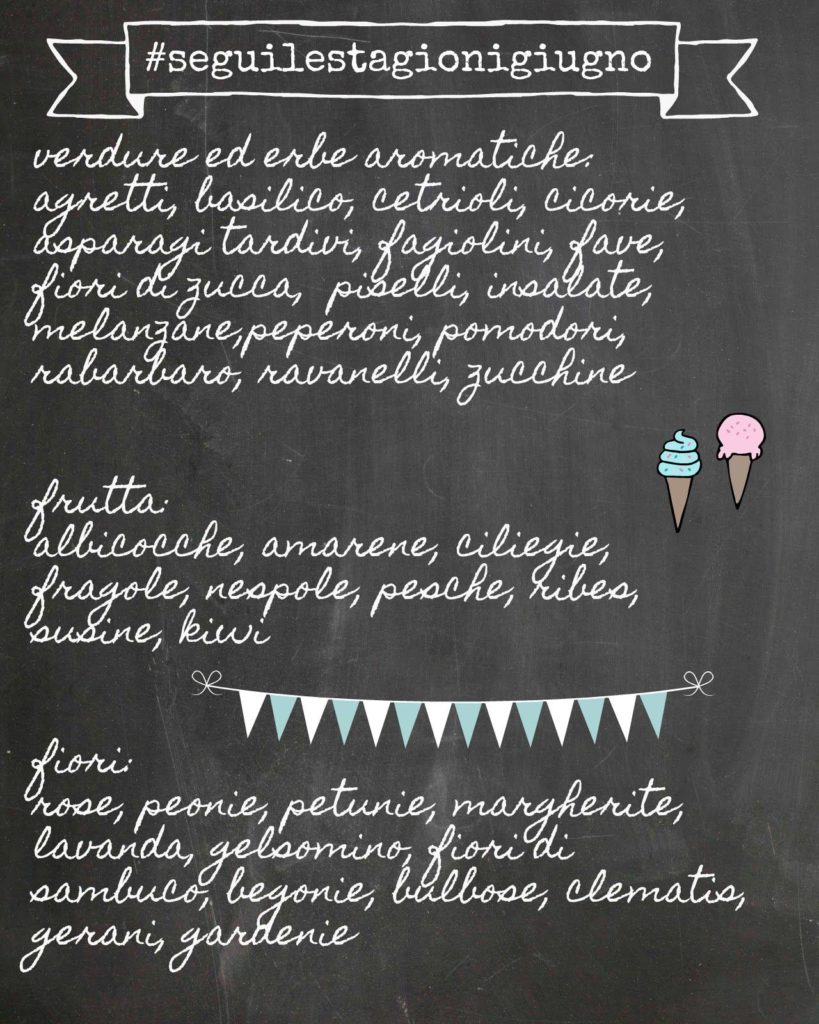 #seguilestagionigiugno
verdure ed erbe aromatiche:
agretti, basilico, cetrioli, cicorie,
asparagi tardivi, fagiolini, fave,
fiori di zucca, piselli, insalate,
melanzane,peperoni, pomodori,
rabarbaro, ravanelli, zucchine
frutta:
albicocche, amarene, ciliegie,
fragole, nespole, pesche, ribes,
susine, kiwi
fiori:
rose, peonie, petunie, margherite,
lavanda, gelsomino, fiori di
sambuco, begonie, bulbose, clematis,
gerani, gardenie